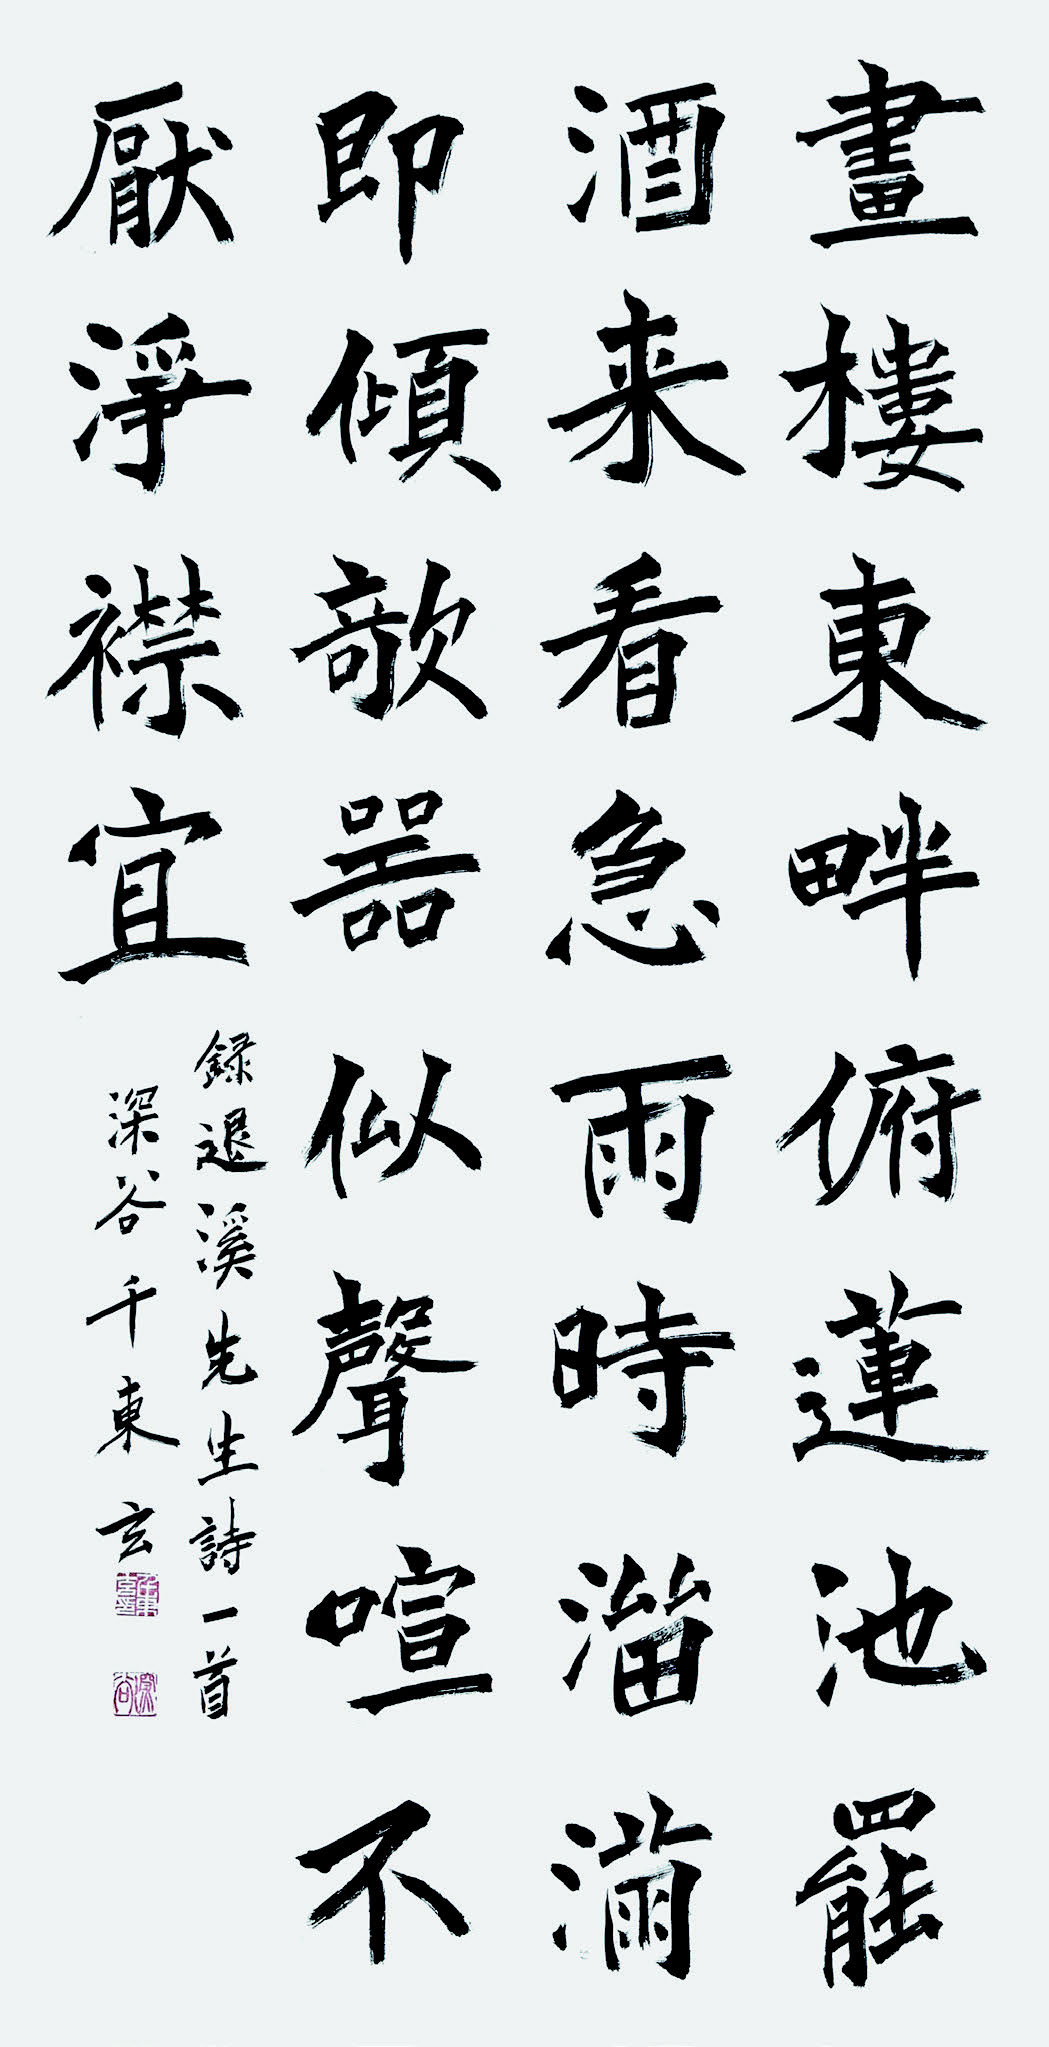 畫樓東畔俯蓮池罷
酒来看急雨時溜滿
即傾欹器似聲喧不
厭淨襟宜
録退溪先生詩一首
深谷千東玄